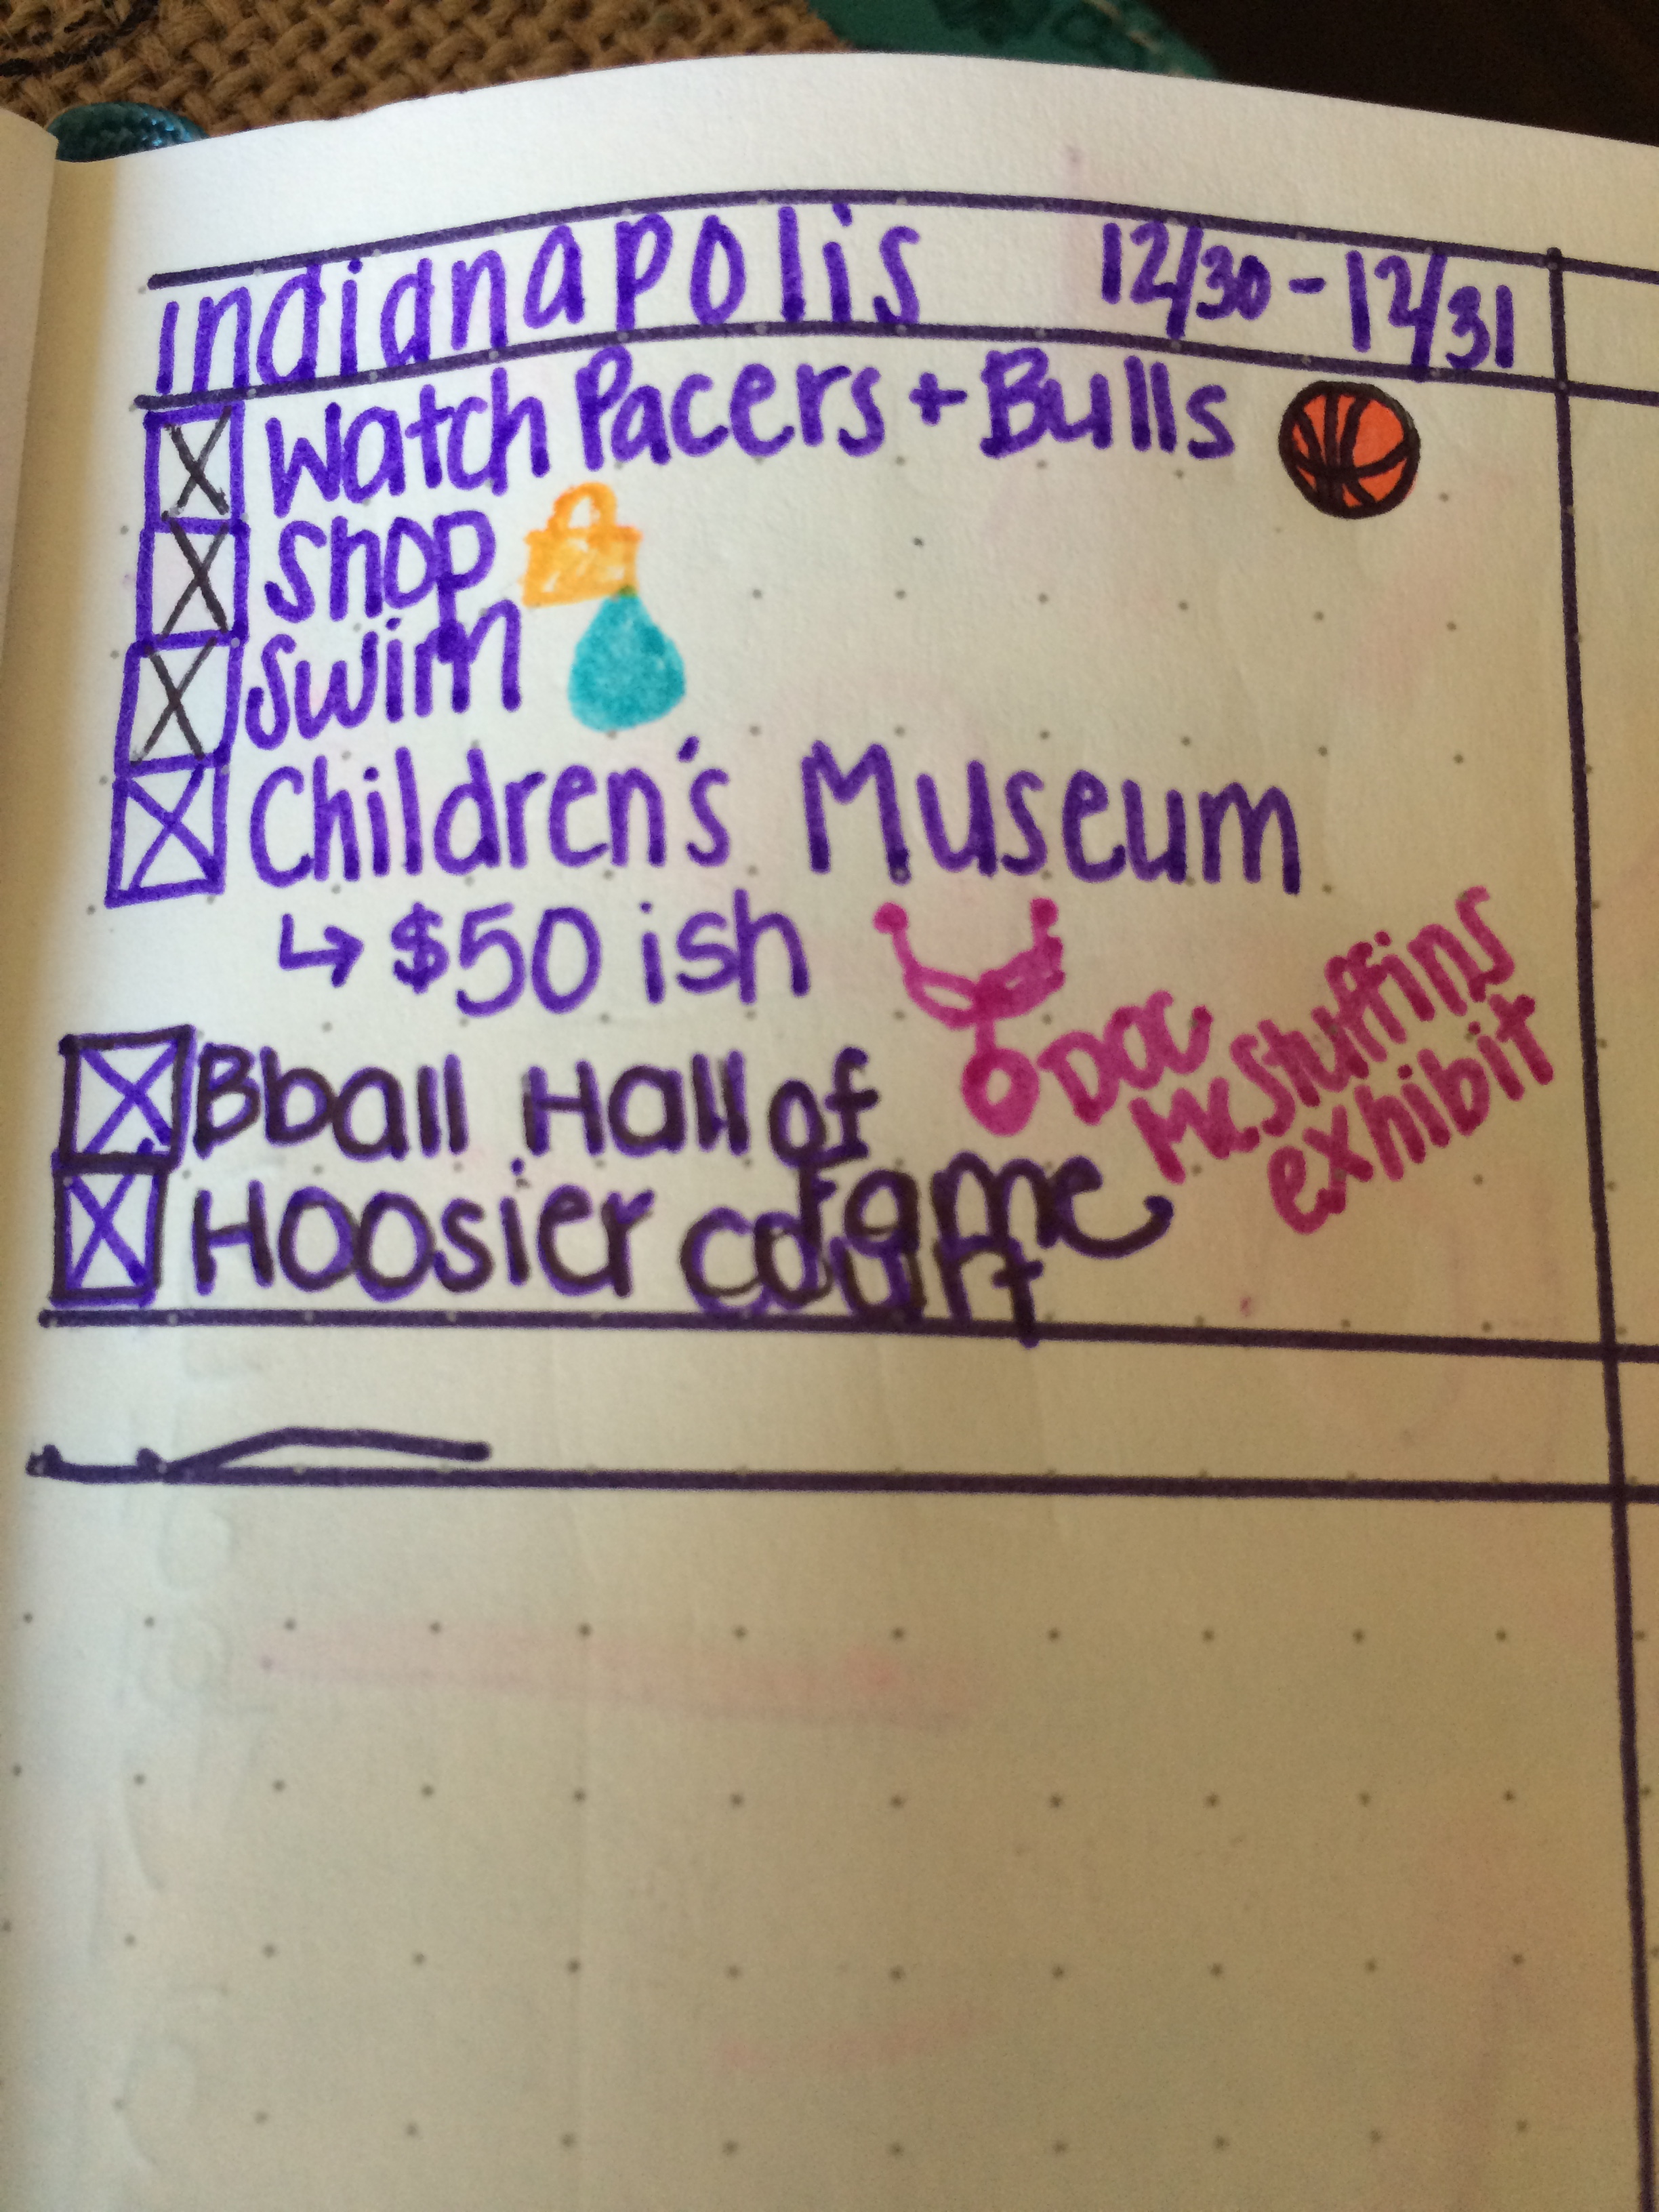 Indianapolis 12/30 - 12/31
Watch Pacers + Bulls
Shop
Swim
Children's Museum
↳ $50 ish
Doc
McStuffins
exhibit
Bball Hall of
Fame
Hoosier court